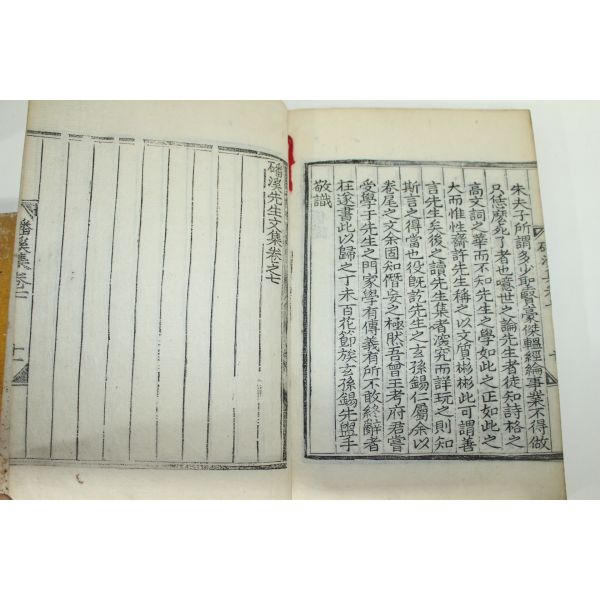 朱夫子所謂多少聖賢豪傑韞經綸事業不得做
只恁麽死了者也噫世之論先生者徒知詩格之
高文詞之華而不知先生之學如此之正如此之
大而惟性齋許先生稱之以文質彬彬此可謂善
言先生矣後之讀先生集者潛究而詳玩之則知
斯言之得當也役旣訖先生之玄孫錫仁屬余以
卷尾之文余固知僭妄之極然吾曾王考府君嘗
受學于先生之門家學有傳義有所不敢終辭者
枉遂書此以歸之丁未百花節族玄孫錫先盥手
敬識
磻溪先生文集卷之七
磻溪集卷
十一